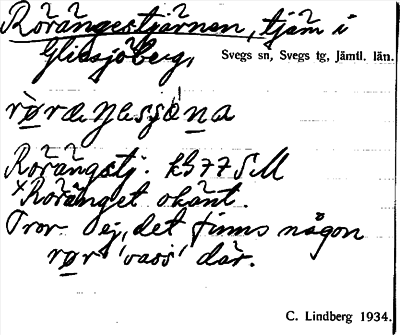 Rörängestjärnen, tjärn i
Glissjöberg,
Svegs sn, Svegs tg, Jämtl. län.
Rörängstj. kb 77 SM
×Röränget okänt.
Tror ej, det finns någon
rør 'vass' där.
C. Lindberg 1934.